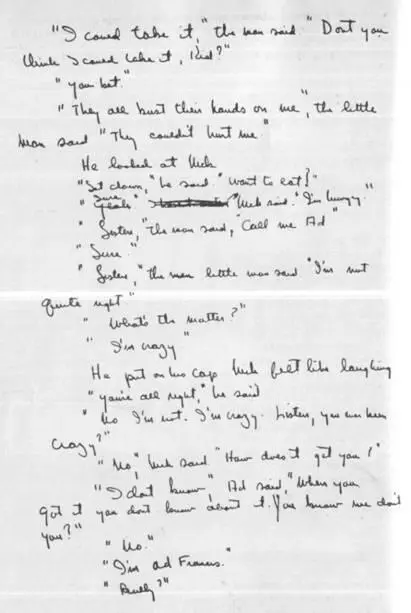 "I could take it," the man said. "Dont you
think I could take it, Kid?"
"You bet."
"They all bust their hands on me", the little
man said "They couldn't hurt me"
He looked at Nick
"Sit down," he said. "Want to eat?"
"Sure. Nick said. "I'm hungry."
"Listen," the man said, "Call me Ad"
"Sure."
"Listen," the man little man said. "I'm not
quite right."
"What's the matter?"
"I'm crazy"
He put on his cap. Nick felt like laughing
"You're all right," he said
"No I'm not. I'm crazy. Listen, you ever been
crazy?"
"No," Nick said. "How does it get you?"
"I dont know," Ad said, "When you
got it you dont know about it. You know me dont
you?"
"No."
"I'm Ad Francis."
"Really?"